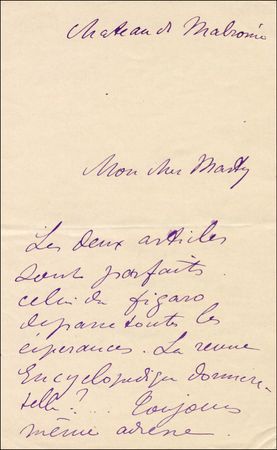 Chateau de Malromé
Mon cher Marty
Les deux articles
sont parfaits.
celui du figaro
dépasse toutes les
espérances. La revue
Encyclopédique donnera-
t elle ?... Toujours
même adresse.